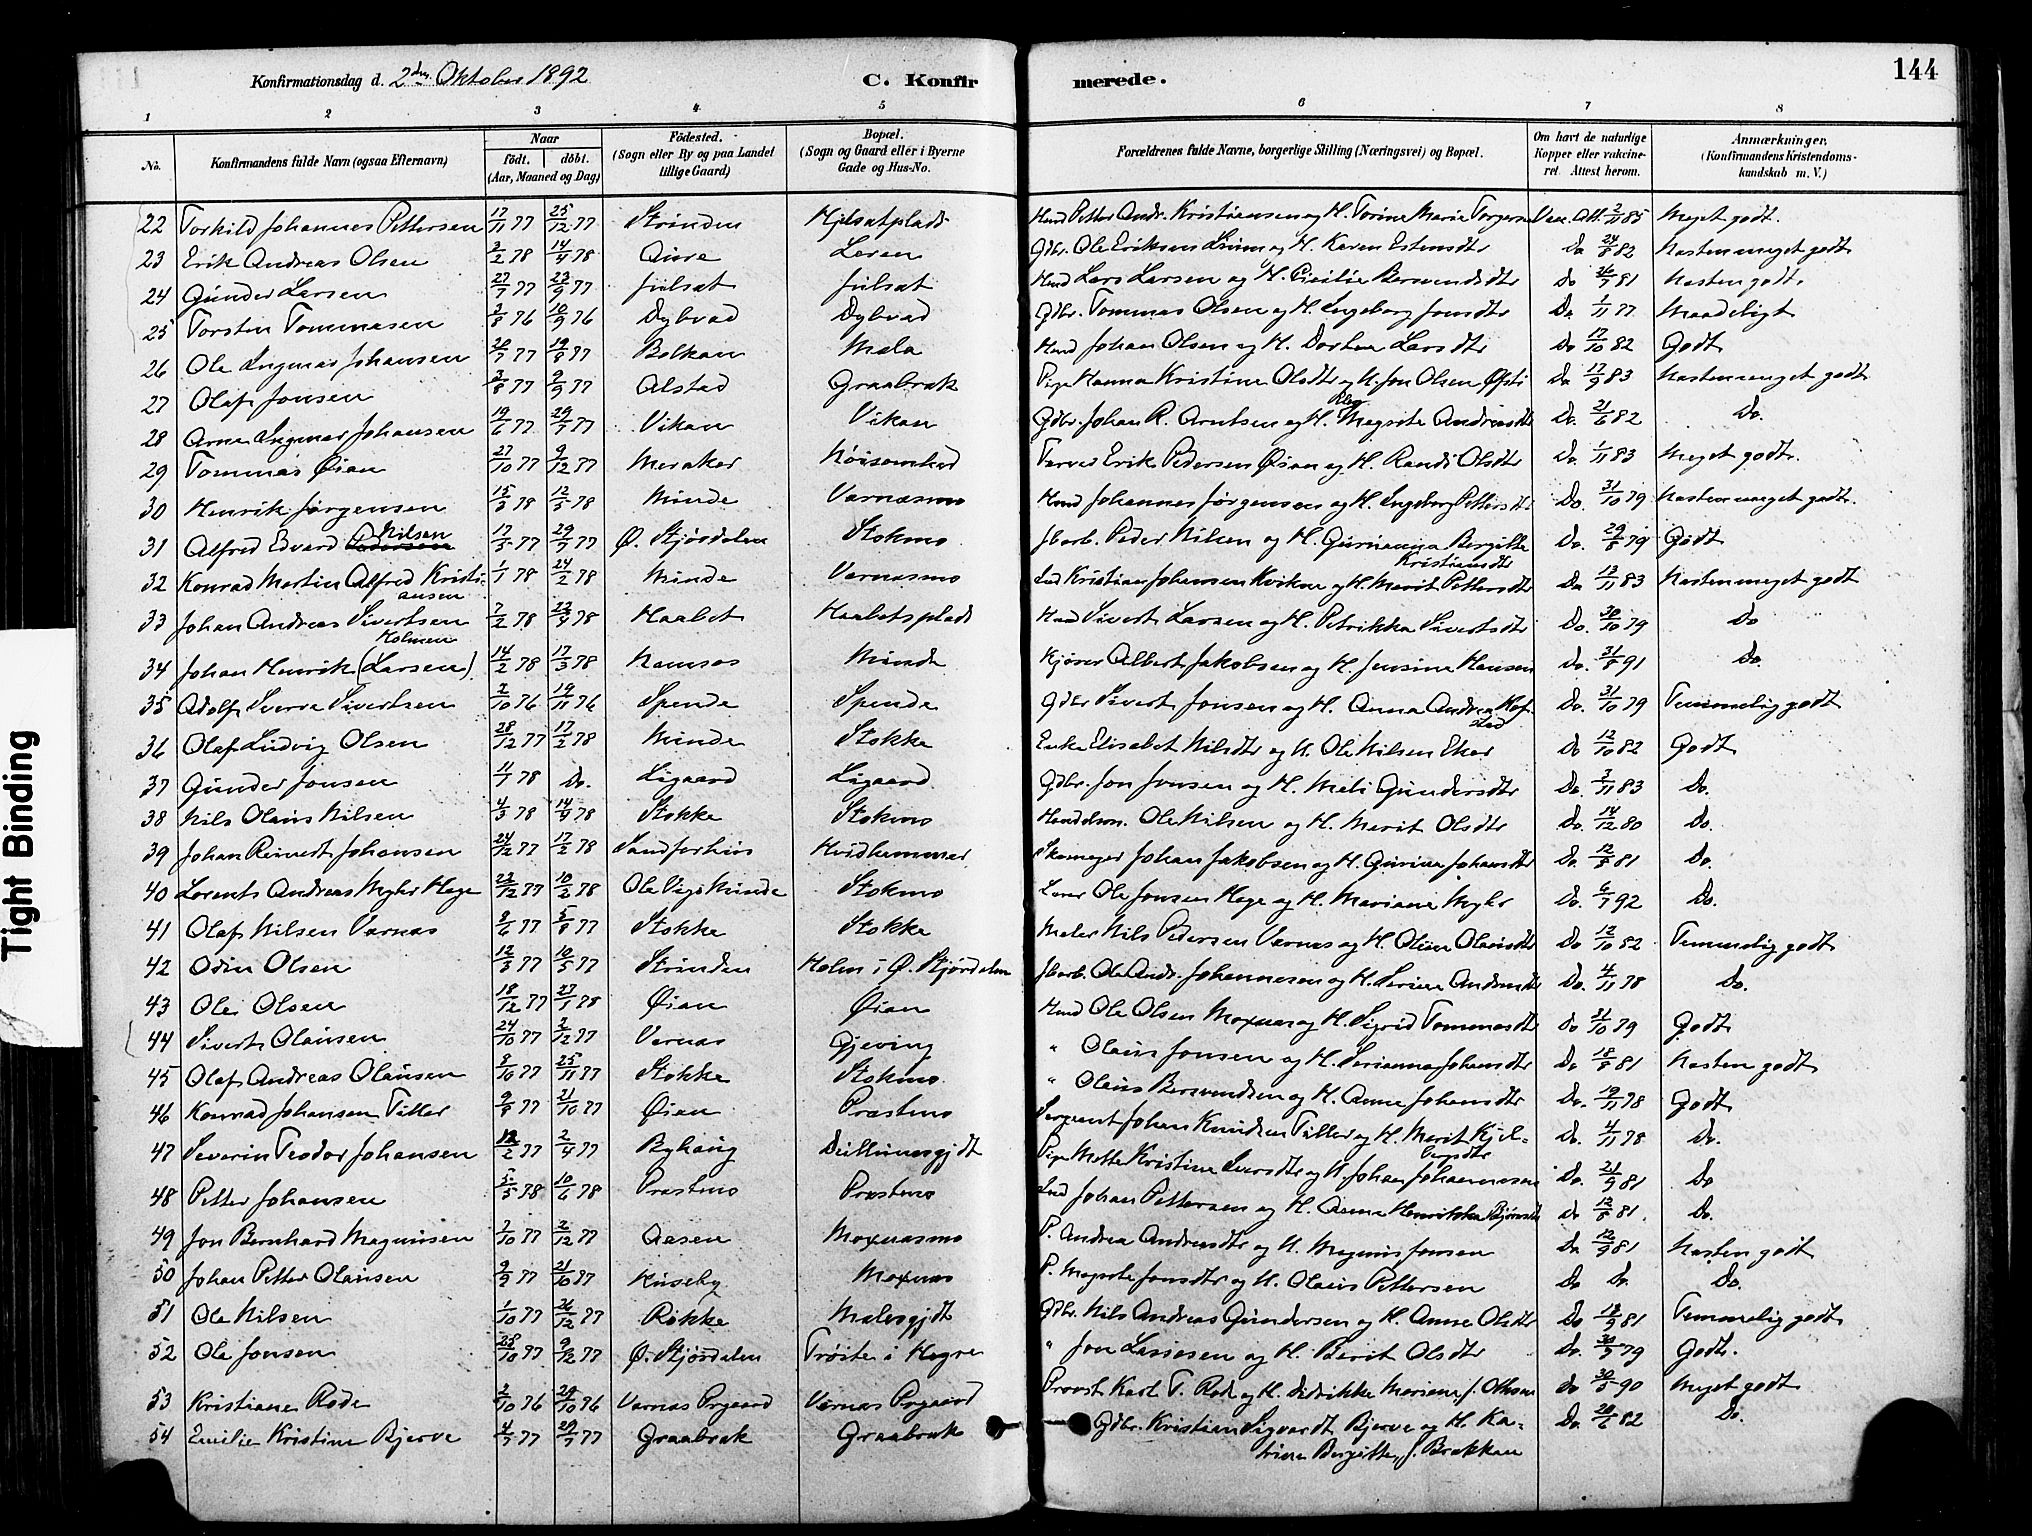 144
Konfirmationsdag d. 2den Oktober 1892 C. Konfirmerede.
1 2 3 4 5 6 7 8
No. Konfirmandens fulde Navn (ogsaa Efternavn) Naar födt. döbt. (Aar, Maaned og Dag) Födested. (Sogn eller By og paa Landet tillige Gaard) Bopæl. (Sogn og Gaard eller i Byerne Gade og Hus-No. Forældrenes fulde Navne, borgerlige Stilling (Næringsvei) og Bopæl. Om havt de naturlige Kopper eller vakcineret. Attest herom. Anmærkninger. (Konfirmandens Kristendomskundskab m. V.)
22 Torkild Johannes Pettersen 17/11 77 25/12 77 Strinden Hjelsatplads Hmd Petter Andr. Kristiansen og H. Torine Marie Torgersen Vac. Att. 2/11 85 Meget godt.
23 Erik Andreas Olsen 3/2 78 14/4 78 Aure Leren Gdbr. Ole Eriksen og H. Karen Estensdtr Do 24/8 82 Næsten meget godt
24 Gunder Larsen 27/7 77 23/9 77 Julsat Julsat Hmd Lars Larsen og H. Cicilie Bersvendsdtr Do 26/7 81 Næsten godt.
25 Torsten Tommasen 3/8 76 10/9 76 Dybvad Dybvad Gdbr. Tommas Olsen og H. Ingeborg Jonsdtr Do 1/11 77 Maadeligt
26 Ole Ingmar Johansen 20/7 77 19/8 77 Balkan Mæla Hmd Johan Olsen og H. Dortea Larsdtr Do 17/10 82 Godt
27 Olaf Jonsen 3/8 77 9/9 77 Alstad Graabræk Pige Hanna Kristine Olsdtr og U. Jon Olsen Øfsti Do 17/9 83 Næsten meget godt
28 Arne Ingmar Johansen 19/6 77 29/7 77 Vikan Vikan Gdbr. Johan R. Arntsen og H. Megrete Andreasdtr Do. 21/6 82 Do.
29 Tommas Øian 27/10 77 9/12 77 Meraker Nöisomhed Farver Erik Pedersen Øian og H. Randi Olsdtr Do. 1/11 83 Meget godt.
30 Henrik Jørgensen 15/3 78 12/5 78 Minde Værnæsmo Hmd Johannes Jørgensen og H. Ingeborg Pettersdtr Do. 31/10 79 Næsten meget godt.
31 Alfred Edvard Nilsen 17/5 77 29/7 77 Ø. Stjørdalen Stokmo Jbarb. Peder Nilsen og H. Gurianna Bergitte Kristiansdtr Do. 29/8 79 Godt
32 Konrad Martin Alfred Kristiansen 1/1 78 24/2 78 Minde Værnæsmo Ind Kristian Johansen Kvikne og H. Marit Pettersdtr Do 13/11 83 Næsten meget godt
33 Johan Andreas Sivertsen 7/2 78 22/4 78 Haabet Haabetsplads Hmd Sivert Larsen og H. Petrikka Sivertsdtr Do. 30/10 79 Do
34 Johan Henrik Holmen (Larsen) 14/2 78 17/3 78 Namsos Minde Kjører Albert Jakobsen og H. Jensine Hansen Do. 31/8 91 Do.
35 Adolf Sverre Sivertsen 2/10 76 19/11 76 Spende Spende Gdbr Sivert Jonsen og H. Anna Andrea Hofstad Do. 31/10 79 Temmelig godt
36 Olaf Ludvig Olsen 28/12 77 17/2 78 Minde Stokke Enke Elisabet Nilsdtr og U. Ole Nilsen Eker Do 12/10 82 Godt
37 Gunder Jonsen 11/1 78 Do. Ligaard Ligaard Gdbr. Jon Jonsen og H. Meli Gundersdtr Do. 3/11 83 Do.
38 Nils Olaus Nilsen 4/3 78 14/4 78 Stokke Stokmo Handelsm. Ole Nilsen og H. Marit Olsdtr Do. 14/12 80 Do.
39 Johan Reinert Johansen 24/12 77 17/2 78 Sandferhus Hvidhammer Skomager Johan Jakobsen og H. Gurine Johansdtr Do. 12/8 81 Do.
40 Lorents Andreas Myhr Hege 23/12 77 10/2 78 Ole Vigs Minde Stokmo Lærer Ole Jonsen Hege og H. Mariane Myhr Do. 6/7 92 Do.
41 Olaf Nilsen Værnæs 9/6 77 5/8 77 Stokke Stokke Maler Nils Pedersen Værnæs og H. Oline Olausdtr Do 12/10 82 Temmelig godt
42 Odin Olsen 12/3 77 10/5 77 Strinden Holm i Ø. Stjørdalen Jbarb. Ole Andr. Johannesen og H. Serine Andersdtr Do. 4/11 78 Do.
43 Ole Olsen 18/12 77 27/1 78 Øian Øian Hmd Ole Olsen Moxnes og H. Sigrid Tommasdtr Do 31/10 79 Godt
44 Sivert Olausen 24/10 77 2/12 77 Værnæs Gjeving " Olaus Jonsen og H. Serianna Johansdtr Do. 18/8 81 Næsten godt
45 Olaf Andreas Olausen 8/10 77 25/11 77 Stokke Stokmo. " Olaus Bersvendsen og H. Anne Johansdtr Do. 19/11 78 Godt
46 Konrad Johansen Tiller 9/8 77 21/10 77 Øien Præstmo Sergeant Johan Knudsen Tiller og H. Marit Kjelbergsdtr Do. 4/11 78 Do.
47 Severin Teodor Johansen 12/2 77 2/4 77 Byhaug Pige Mette Kristine Iversdtr og U. Johan Johannesen Do. 21/9 81 Do
48 Petter Johansen 5/5 78 10/6 78 Præstmo Præstmo Ind Johan Pettersen og H. Anna Henrikka Bjørnsdtr Do 12/8 81. Do.
49 Jon Bernhard Magnusen 2/10 77 2/12 77 Aasen Moxnesmo P. Andrea Andreasdtr og U. Magnus Jonsen Do 12/9 81 Næsten godt
50 Johan Petter Olausen 9/9 77 21/10 77 Huseby Moxnes P. Magrete Jonsdtr og U. Olaus Pettersen Do Do. Do.
51 Ole Nilsen 1/10 77 26/12 77 Røkke Mælesgjdt Gdbr. Nils Andreas Gundersen og H. Anne Olsdtr Do 12/9 81 Temmelig godt
52 Ole Jonsen 28/10 77 9/12 77 Ø. Stjørdalen Trøite i Hegre " Jon Lassesen og H. Berit Olsdtr Do. 30/9 79 Godt.
53 Kristiane Rode 2/10 76 29/10 76 Værnæs Prgaard Værnæs Prgaard Provst Karl T. Rode og H. Didrikke Mariane f. Do 30/5 90 Meget godt
54 Emilie Kristine Bjerve 4/7 77 29/7 77 Graabræk Graabræk Gdbr. Kristian Sigvardt Bjerve og H. Katrine Bergitte, f. Brækkan Do. 20/6 82 Do.
Tight Binding